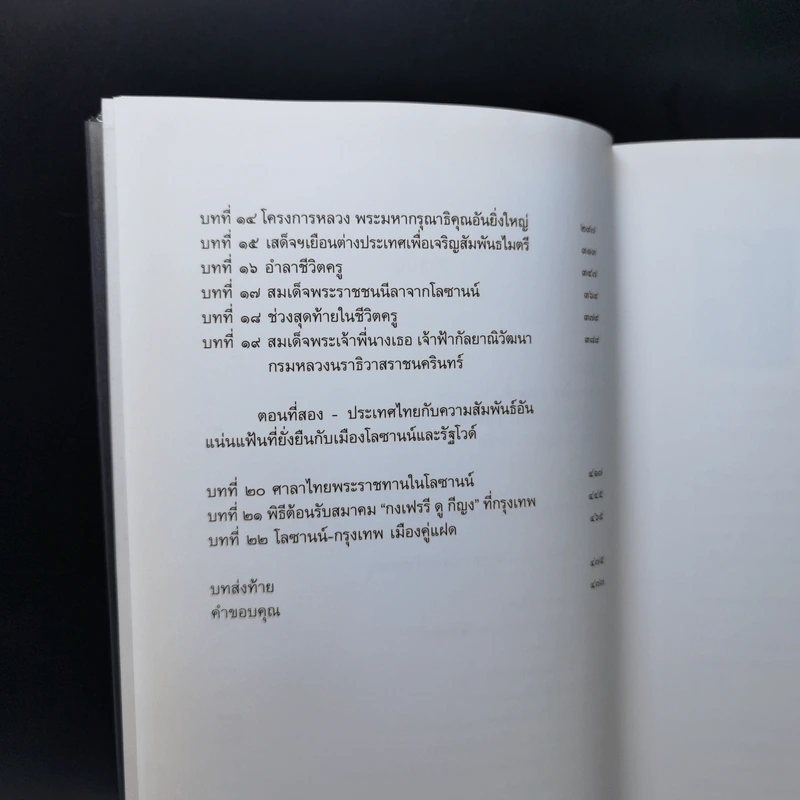 บทที่ ๑๔ โครงการหลวง พระมหากรุณาธิคุณอันยิ่งใหญ่
บทที่ ๑๕ เสด็จฯเยือนต่างประเทศเพื่อเจริญสัมพันธไมตรี
บทที่ ๑๖ อำลาชีวิตครู
บทที่ ๑๗ สมเด็จพระราชชนนีลาจากโลซานน์
บทที่ ๑๘ ช่วงสุดท้ายในชีวิตครู
บทที่ ๑๙ สมเด็จพระเจ้าพี่นางเธอ เจ้าฟ้ากัลยาณิวัฒนา
กรมหลวงนราธิวาสราชนครินทร์
ตอนที่สอง - ประเทศไทยกับความสัมพันธ์อัน
แน่นแฟ้นที่ยั่งยืนกับเมืองโลซานน์และรัฐโวด์
บทที่ ๒๐ ศาลาไทยพระราชทานในโลซานน์
บทที่ ๒๑ พิธีต้อนรับสมาคม “กงเฟรรี ดู กีญง” ที่กรุงเทพ
บทที่ ๒๒ โลซานน์-กรุงเทพ เมืองคู่แฝด ๔๖๕
บทส่งท้าย ๔๗๕
คำขอบคุณ